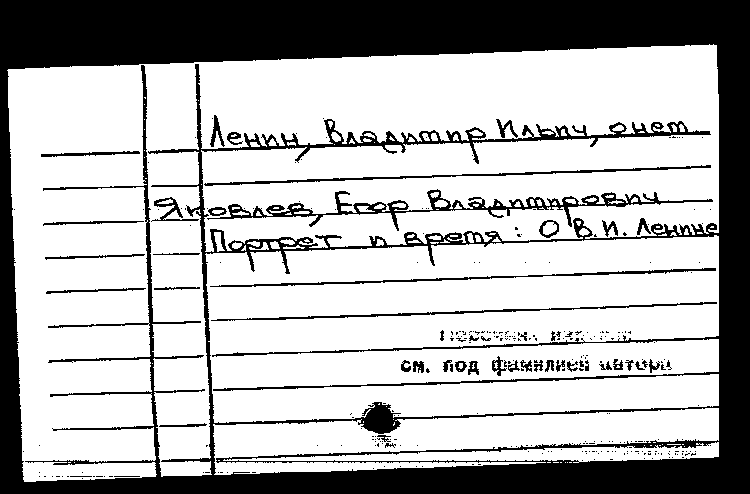 Ленин, Владимир Ильич, о нем
Яковлев, Егор Владимирович
Портрет и время: О В.И. Ленине
Перечень изданий
см. под фамилией автора